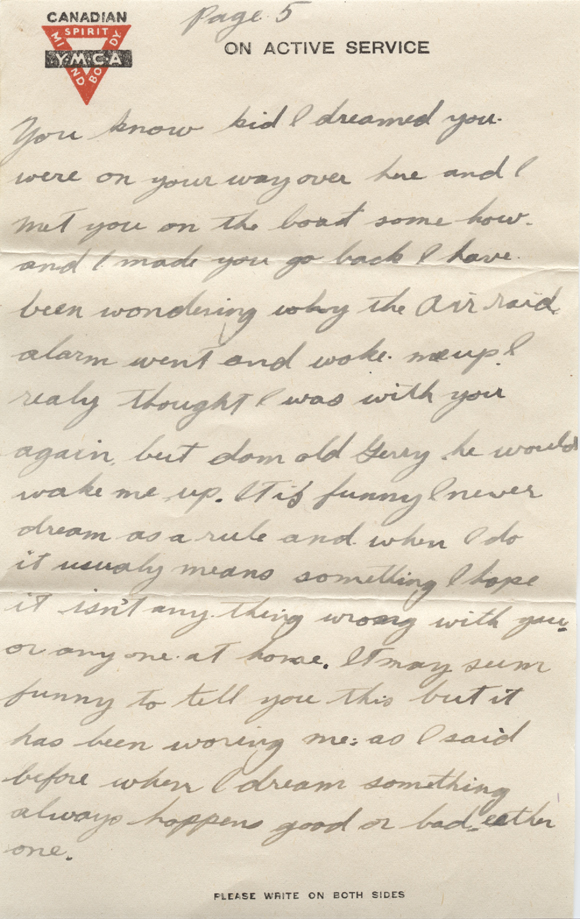 Page 5
CANADIAN
SPIRIT
MIND BODY
Y·M·C·A
ON ACTIVE SERVICE
You know kid I dreamed you
were on your way over here and I
met you on the boat some how.
and I made you go back I have
been wondering why the Air raid
alarm went and woke me up. I
realy thought I was with you
again, but dam old Gerry he would
wake me up. It is funny I never
dream as a rule and when I do
it usualy means something I hope
it isn't any thing wrong with you
or any one at home. It may seem
funny to tell you this but it
has been woring me: as I said
before when I dream something
always happens good or bad. either
one.
PLEASE WRITE ON BOTH SIDES